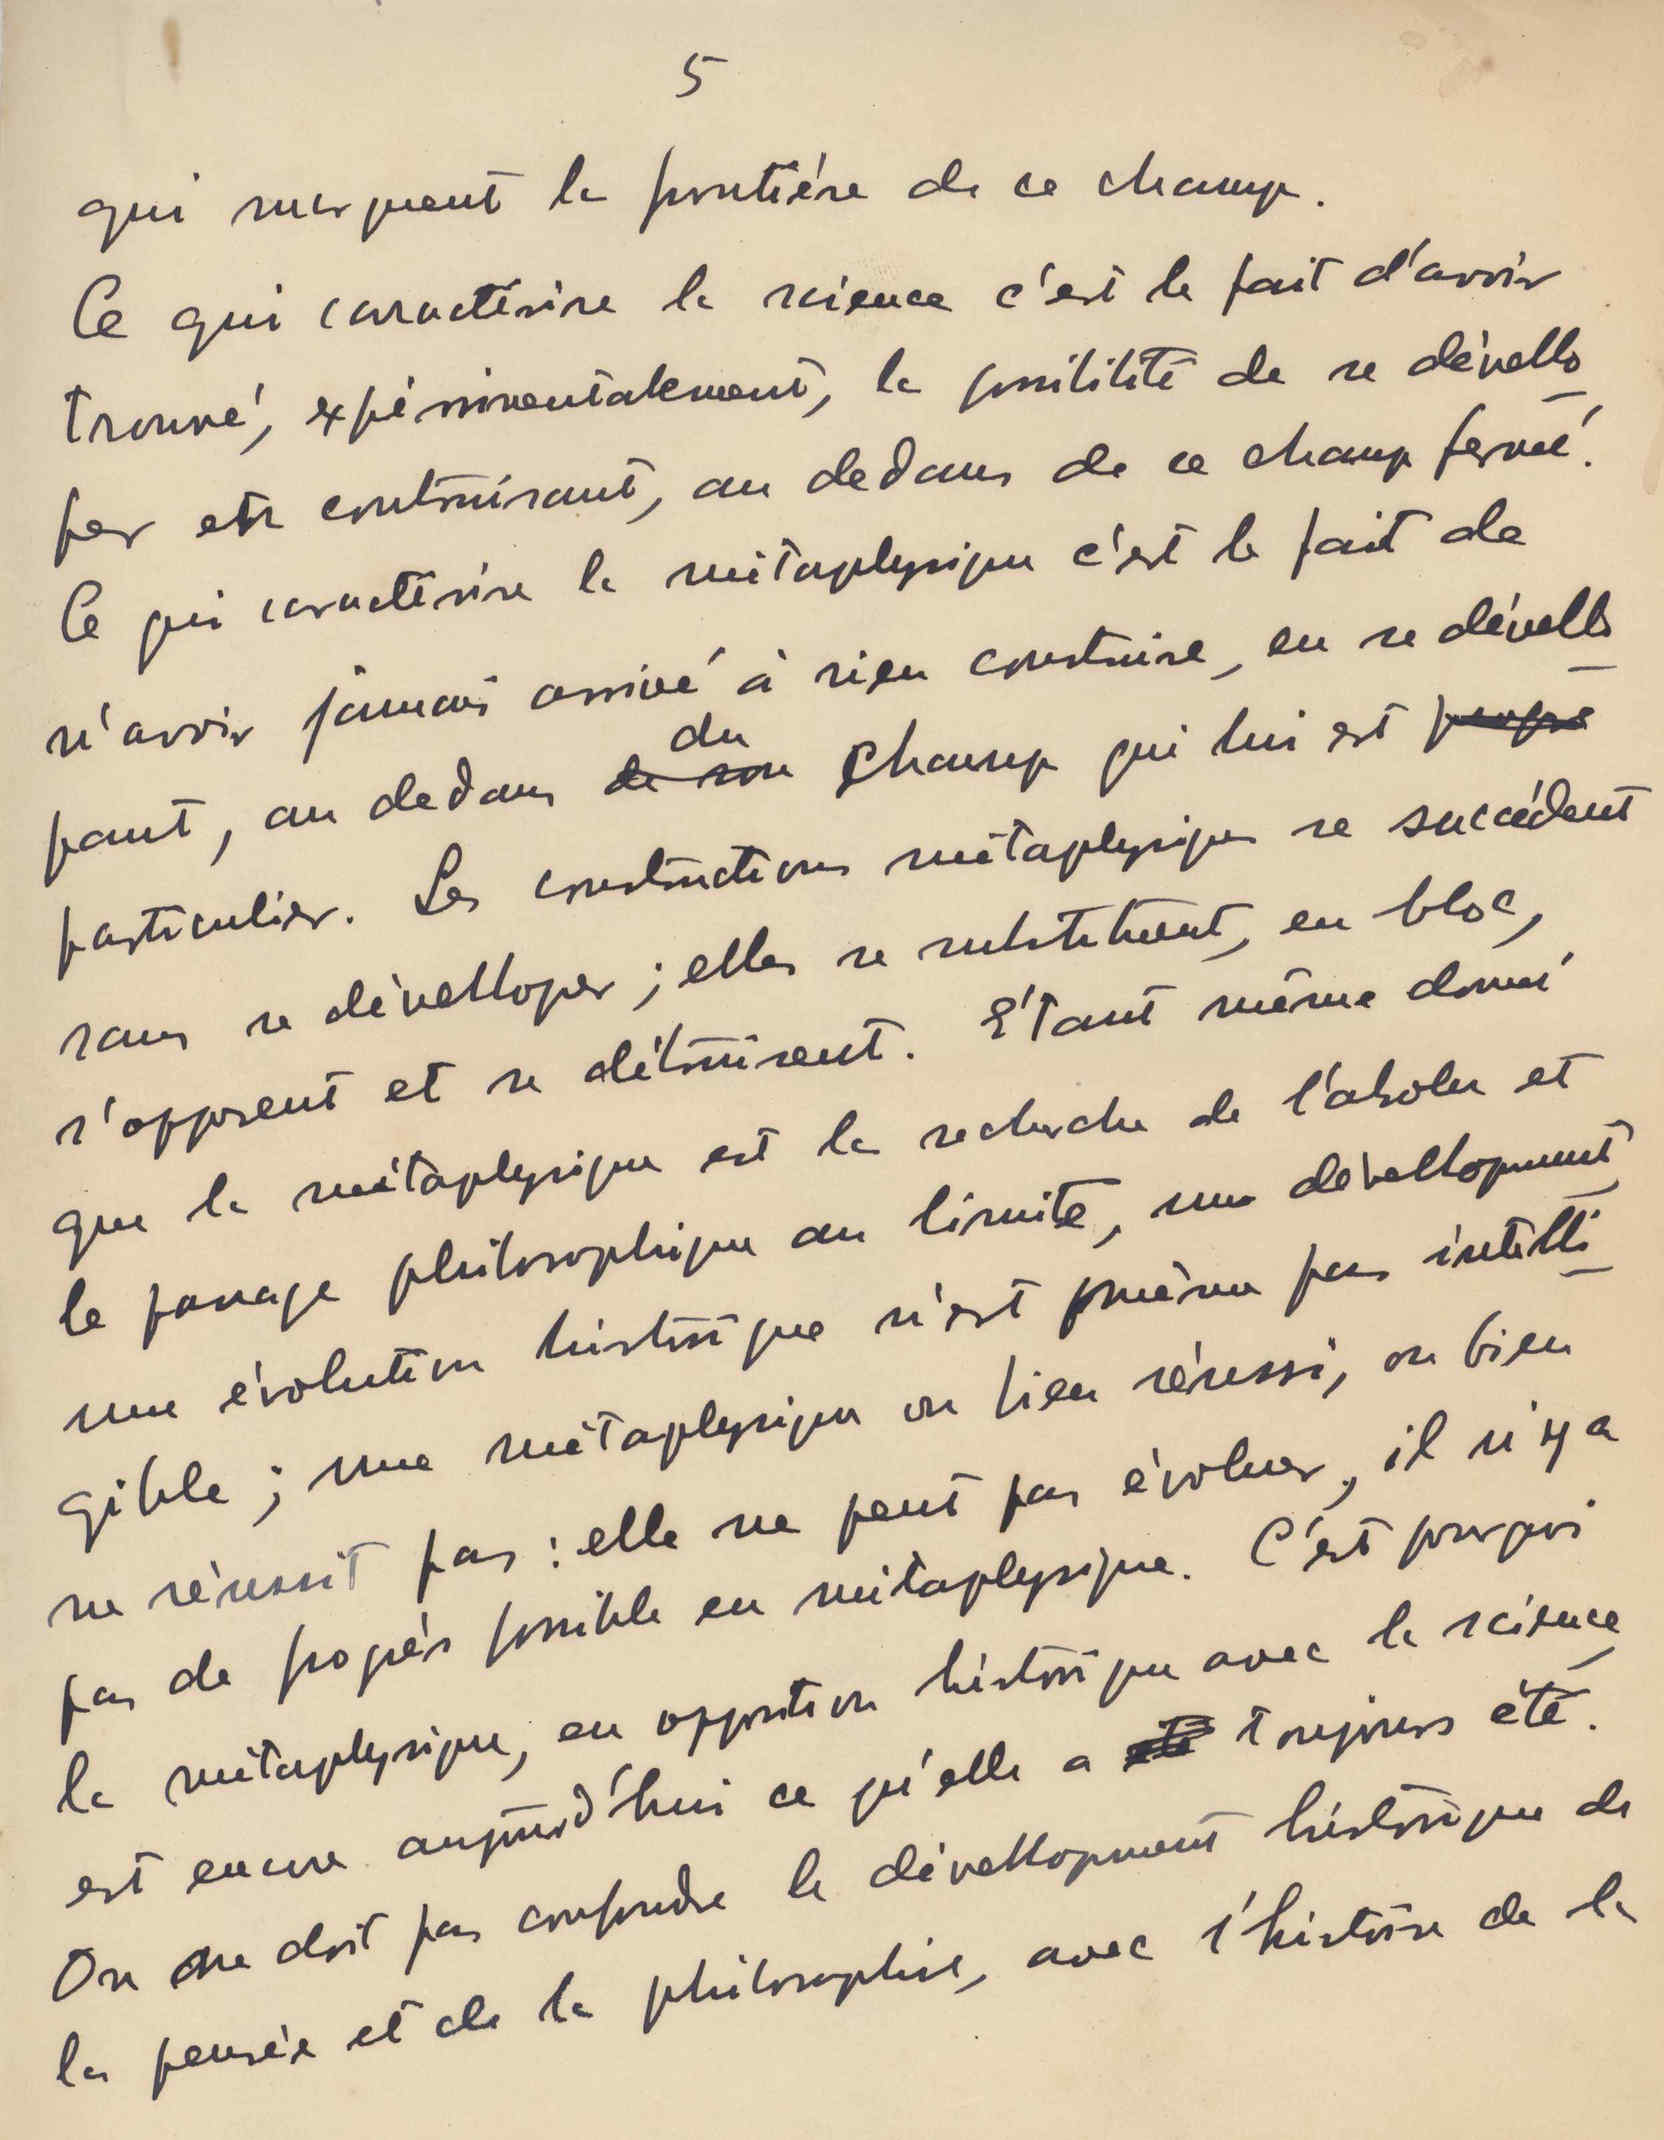 5
qui marquent la frontière de ce champ.
Ce qui caractérise la science c'est le fait d'avoir
trouvé, expérimentalement, la possibilité de se dévello
per en contruisant, au dedans de ce champ fermé.
Ce qui caractérise la métaphysique c'est le fait de
n'avoir jamais arrivé à rien construire, en se dévello
pant, au dedans de son du champ qui lui est propre
particulier. Les constructions métaphysiques se succèdent
sans se dévellopper ; elles se substituent, en bloc,
s'opposent et se détruisent. Étant même donné
que la métaphysique est la recherche de l'absolu et
le passage philosophique au limite, un dévellopment,
une évolution historique n'est même pas intelli
gible ; une métaphysique ou bien réussi, ou bien
ne réussit pas : elle ne peut pas évoluer, il n'y a
pas de progrès possible en métaphysique. C'est pourquoi
la métaphysique, en opposition historique avec la science,
est encore aujourd'hui ce qu'elle a été toujours été.
On ne doit pas confondre le dévellopment historique de
la pensée et de la philosophie, avec l'histoire de la